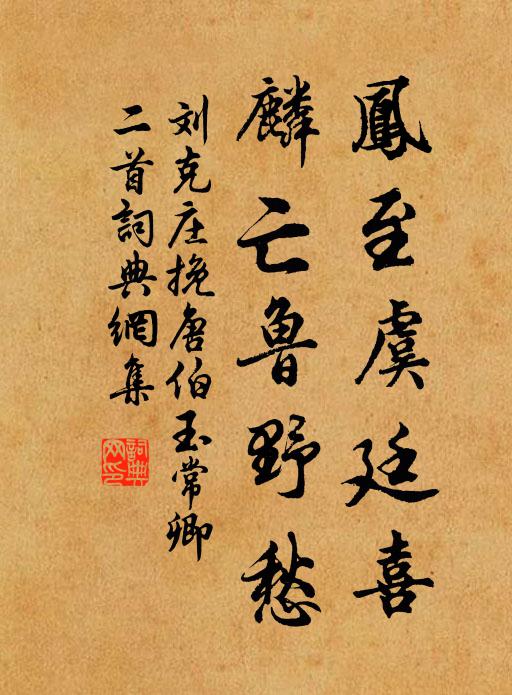 鳳至虞廷喜
麟亡魯野愁
刘克庄挽唐伯玉常卿
二首詞典網集
詞典
网印